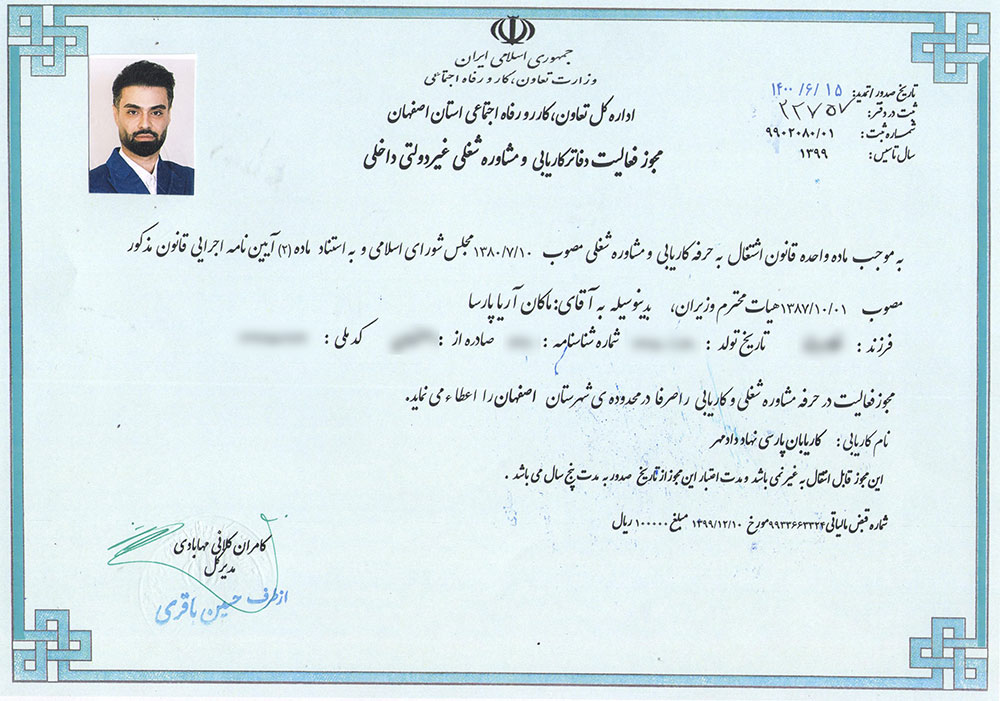 جمهوری اسلامی ایران
وزارت تعاون، کار و رفاه اجتماعی
اداره کل تعاون، کار و رفاه اجتماعی استان اصفهان
مجوز فعالیت دفاتر کاریابی و مشاوره شغلی غیردولتی داخلی
تاریخ صدور / تمدید: ۱۴۰۰/۶/۱۵
ثبت در دفتر: ۲۲۷۵۷
شماره ثبت: ۹۹۰۲۰۸۰/۰۱
سال تاسیس: ۱۳۹۹
به موجب ماده واحده قانون اشتغال به حرفه کاریابی و مشاوره شغلی مصوب ۱۳۸۰/۷/۱۰ مجلس شورای اسلامی و به استناد ماده (۴) آیین نامه اجرایی قانون مذکور
مصوب ۱۳۸۷/۱۰/۰۱ هیات محترم وزیران، بدینوسیله به آقای: ماکان آریا پارسا
فرزند: تاریخ تولد: شماره شناسنامه: صادره از: کد ملی:
مجوز فعالیت در حرفه مشاوره شغلی و کاریابی را صرفا در محدوده ی شهرستان اصفهان را اعطاء می نماید.
نام کاریابی: کاریابان پارسی نهاد دادمهر
این مجوز قابل انتقال به غیر نمی باشد و مدت اعتبار این مجوز از تاریخ صدور به مدت پنج سال می باشد.
شماره قبض مالیاتی ۹۹۳۳۶۶۳۳۲۴ مورخ ۱۳۹۹/۱۲/۱۰ مبلغ ۱۰۰۰۰۰ ریال
کامران کلانی مهابادی
مدیرکل
از طرف حسین باقری